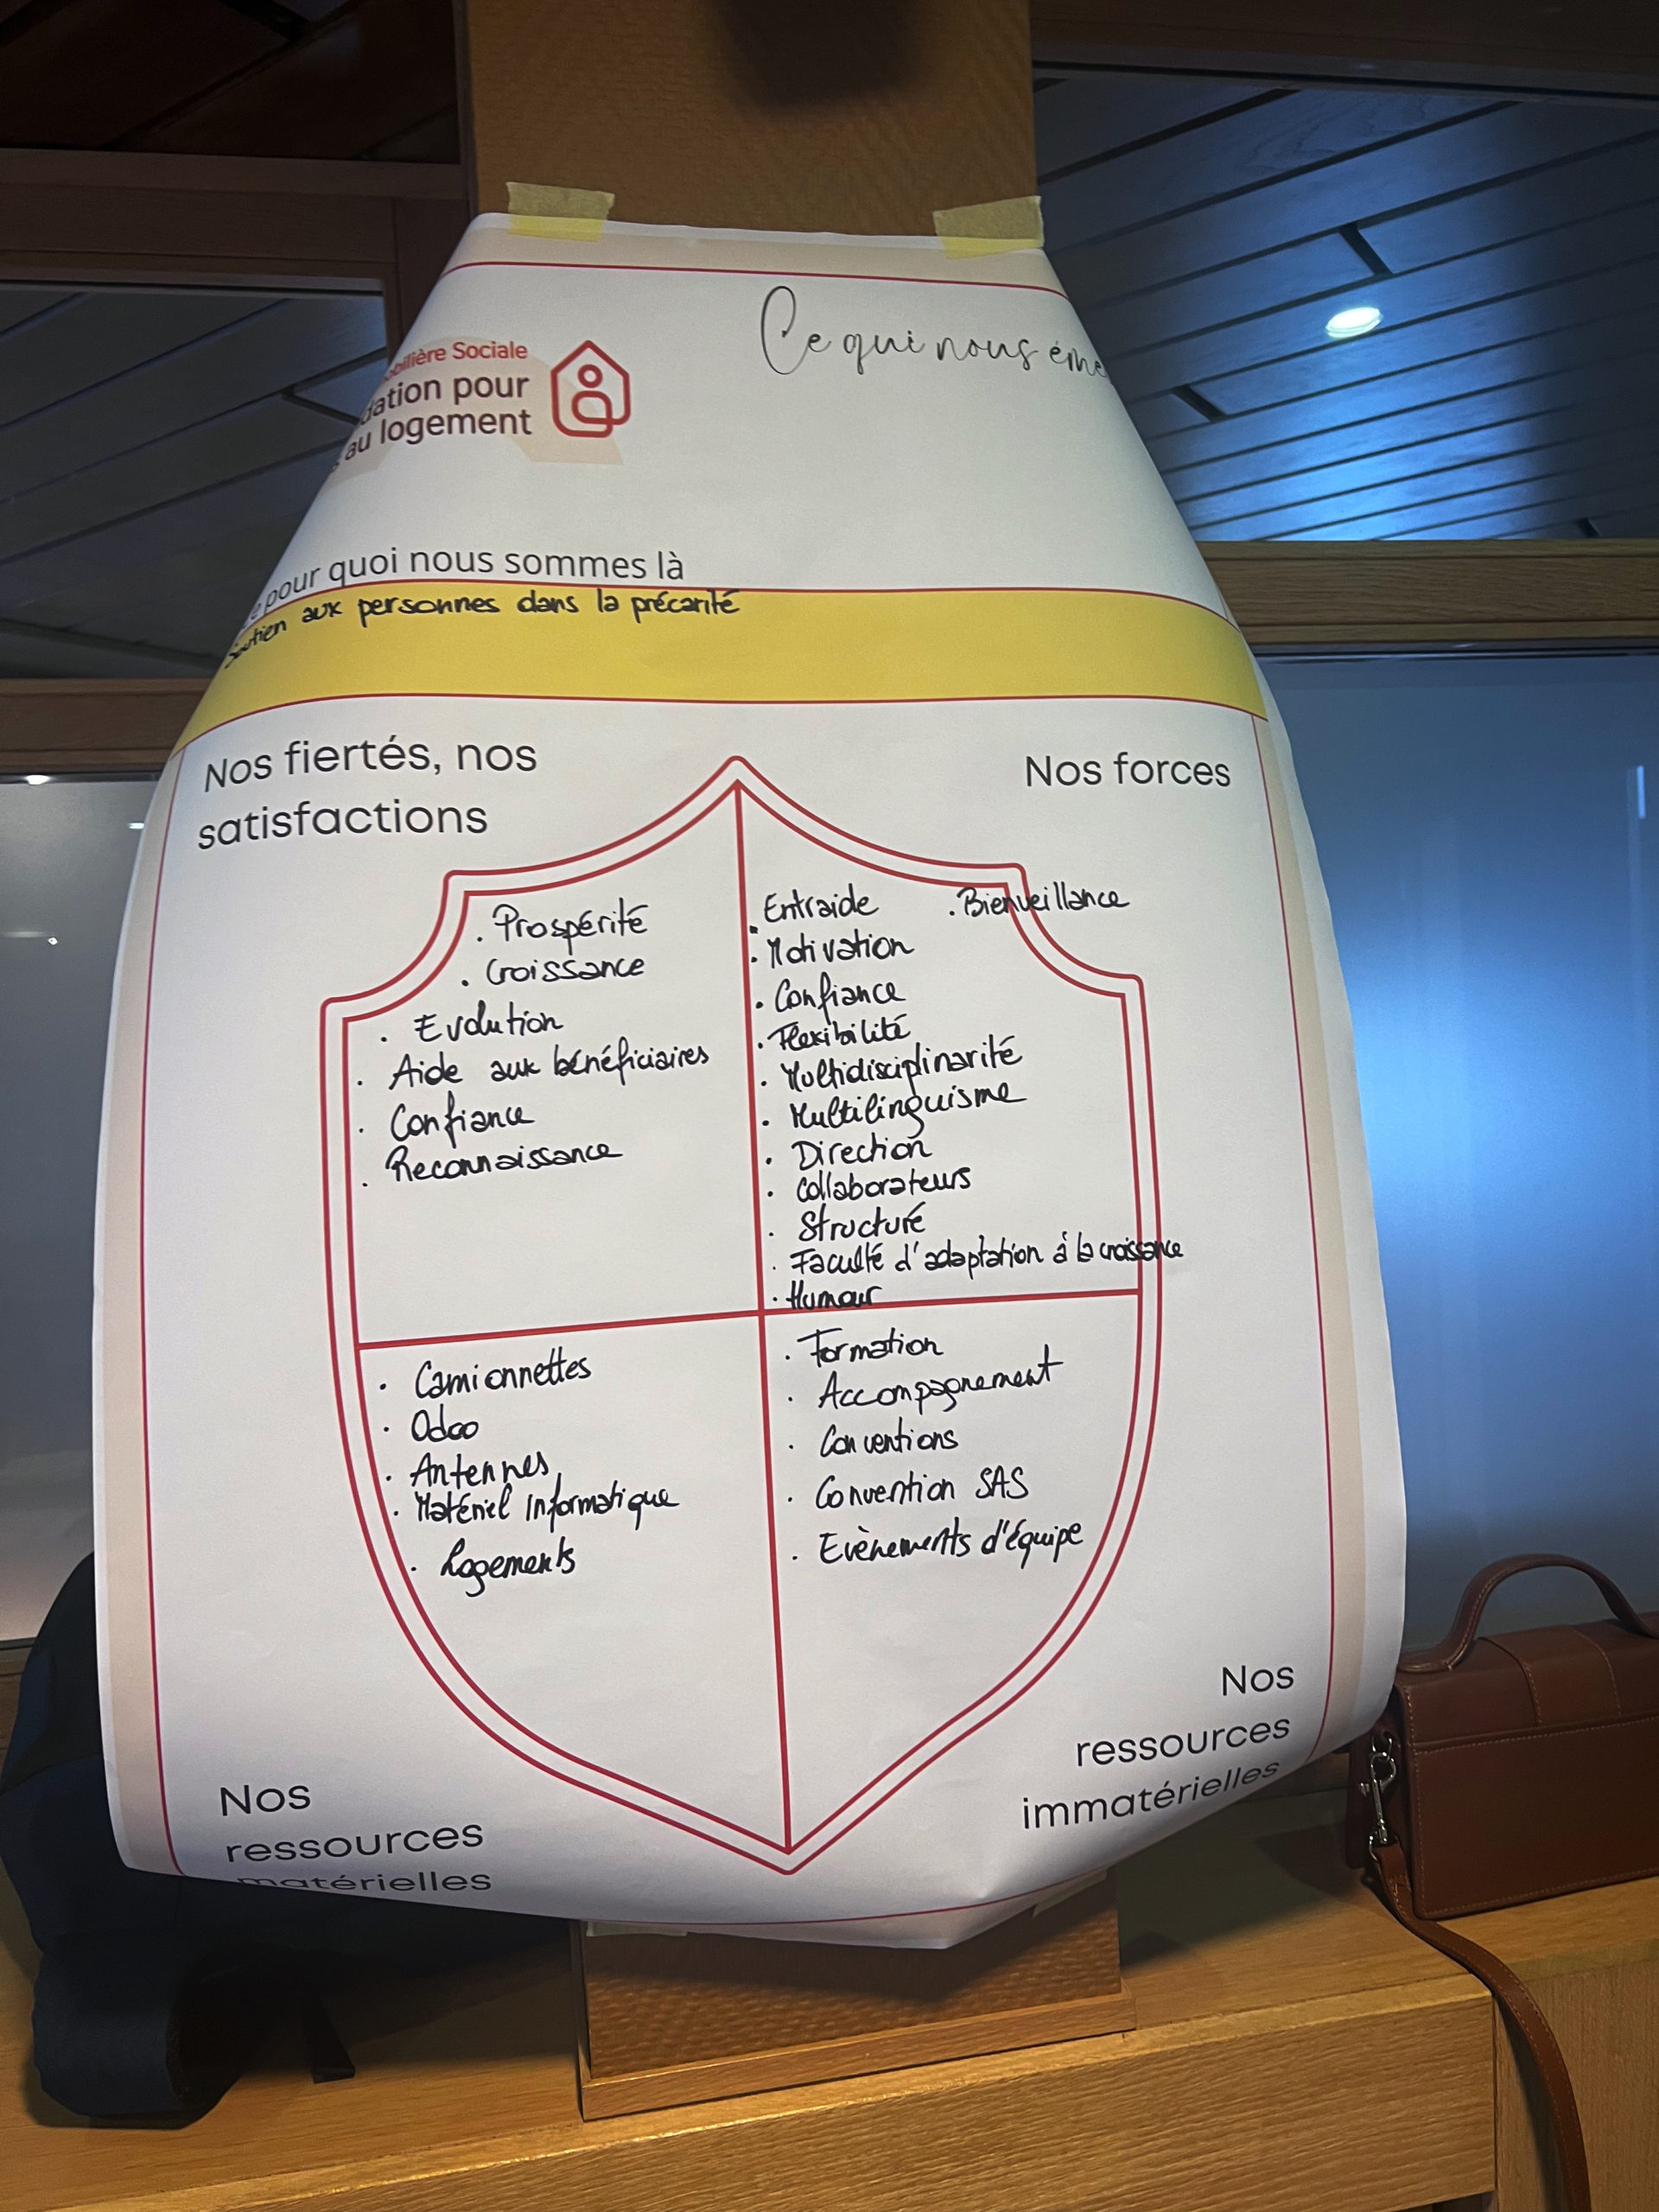 Ce qui nous éme
bilière Sociale
dation pour
au logement
pour quoi nous sommes là
Soutien aux personnes dans la précarité
Nos fiertés, nos
satisfactions
. Prospérité
. Croissance
. Evolution
. Aide aux bénéficiaires
. Confiance
. Reconnaissance
Nos forces
. Entraide . Bienveillance
. Motivation
. Confiance
. Flexibilité
. Multidisciplinarité
. Multilinguisme
. Direction
. Collaborateurs
. Structure
. Faculté d'adaptation à la croissance
. Humour
. Camionnettes
. Odoo
. Antennes
. Matériel Informatique
. Logements
Nos
ressources
matérielles
. Formation
. Accompagnement
. Conventions
. Convention SAS
. Evènements d'équipe
Nos
ressources
immatérielles